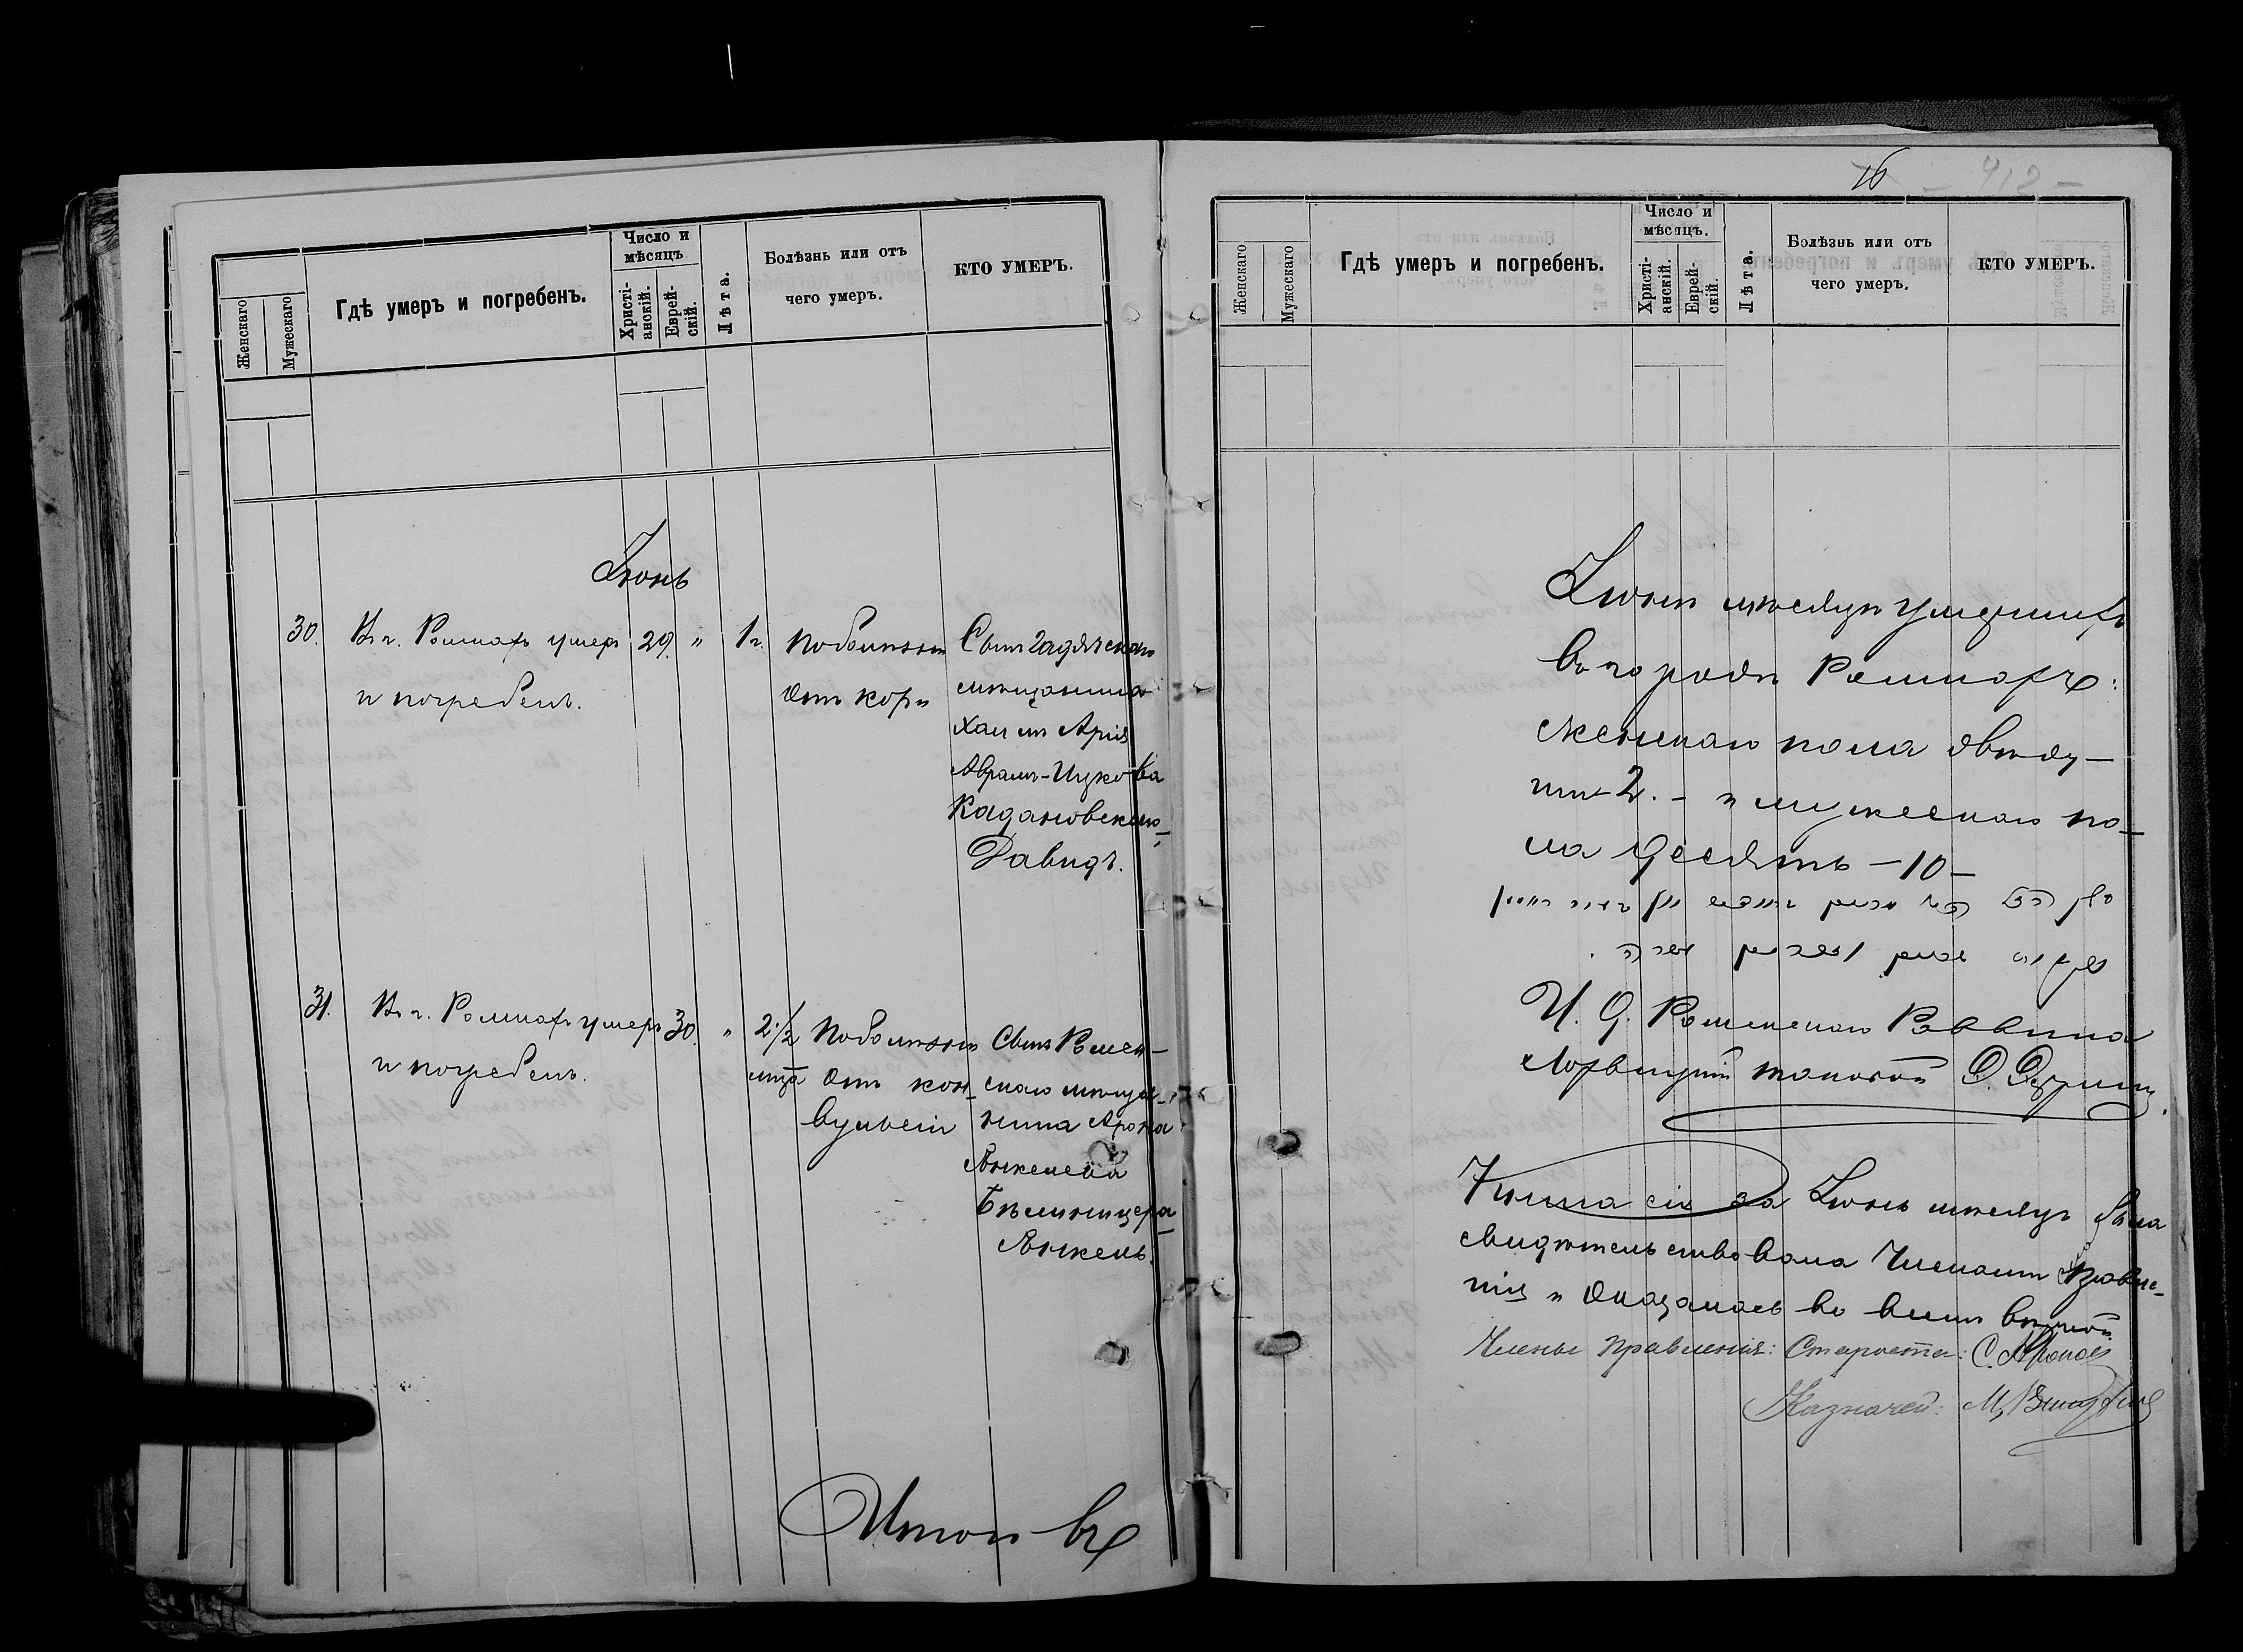 Женскаго
Мужескаго
Гдѣ умеръ и погребенъ.
Число и
мѣсяцъ
Христі-
анскій.
Еврей-
скій.
Лѣта.
Болѣзнь или отъ
чего умеръ.
КТО УМЕРЪ.
Іюнь
30.
Въ г. Ромнахъ умеръ
и погребенъ.
29.
"
1 г.
По болѣзни
отъ кори
Сынъ Гадячскаго
мѣщанина
Хаимъ Арія
Аврамъ-Ицкова
Кадановскаго
Давидъ.
31.
Въ г. Ромнахъ умеръ
и погребенъ.
30.
"
2 1/2
мѣца
По болѣзни
отъ кон-
вульсіи
Сынъ Ромен-
скаго мѣща-
нина Арона
Янкелева
Бѣлиницера
Янкель.
Итого въ
16
- 412 -
Женскаго
Мужескаго
Гдѣ умеръ и погребенъ.
Число и
мѣсяцъ.
Христі-
анскій.
Еврей-
скій.
Лѣта.
Болѣзнь или отъ
чего умеръ.
КТО УМЕРЪ.
Іюнѣ мѣсяцѣ умершихъ
въ городѣ Ромнахъ:
женскаго пола двѣ ду-
ши 2. - и мужескаго по-
ла десять - 10 -
И. д. Роменскаго Раввина
Книга сія за Іюнь мѣсяцъ была
свидѣтельствована Членами Правле-
нія и оказалась во всемъ вѣрной.
Члены Правленія: Староста: С.
Казначей: М.